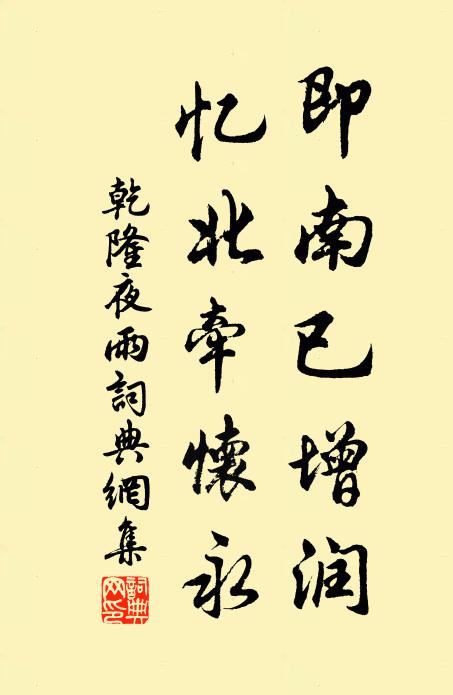 即南已增润
忆北牵懷永
乾隆夜雨詞典網集
詞典网印